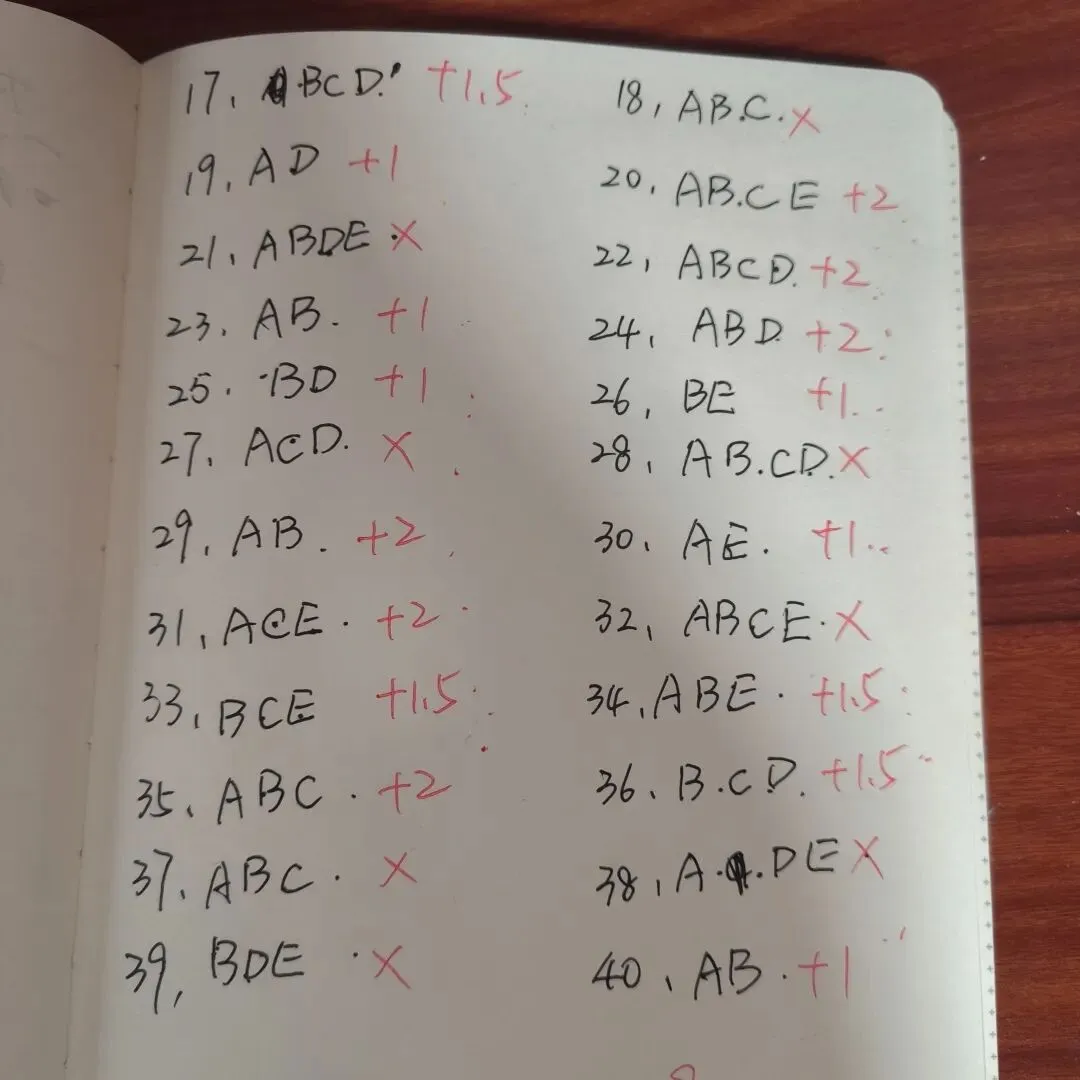 17. BCD. +1.5 18. AB.C. ×
19. AD +1 20. AB.CE +2
21. ABDE × 22. ABCD. +2
23. AB. +1 24. ABD +2
25. BD +1 26. BE +1
27. ACD. × 28. AB.CD. ×
29. AB. +2 30. AE. +1
31. ACE. +2 32. ABCE. ×
33. BCE +1.5 34. ABE. +1.5
35. ABC. +2 36. B.CD. +1.5
37. ABC. × 38. A..DE ×
39. BDE × 40. AB. +1